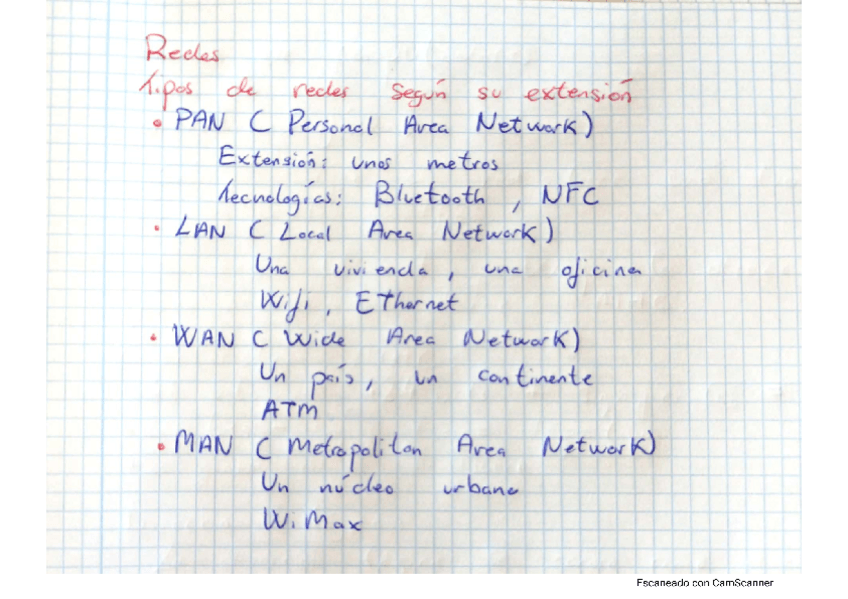 Redes
Tipos de redes según su extensión
• PAN ( Personal Area Network)
Extensión: unos metros
Tecnologías: Bluetooth , NFC
• LAN ( Local Area Network)
Una vivienda , una oficina
Wifi , EThernet
• WAN ( Wide Area Network)
Un país, un continente
ATM
• MAN ( Metropolitan Area Network)
Un núcleo urbano
WiMax
Escaneado con CamScanner